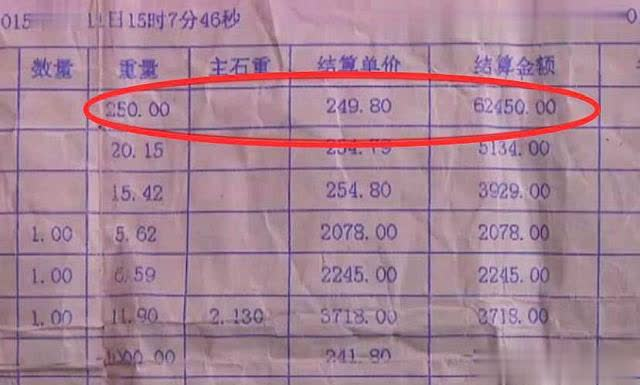 015 11日15时7分46秒 0
数量 重量 主石重 结算单价 结算金额
250.00 249.80 62450.00
20.15 254.79 5134.00
15.42 254.80 3929.00
1.00 5.62 2078.00 2078.00
1.00 6.59 2245.00 2245.00
1.00 11.90 2.130 3718.00 3718.00
241.80